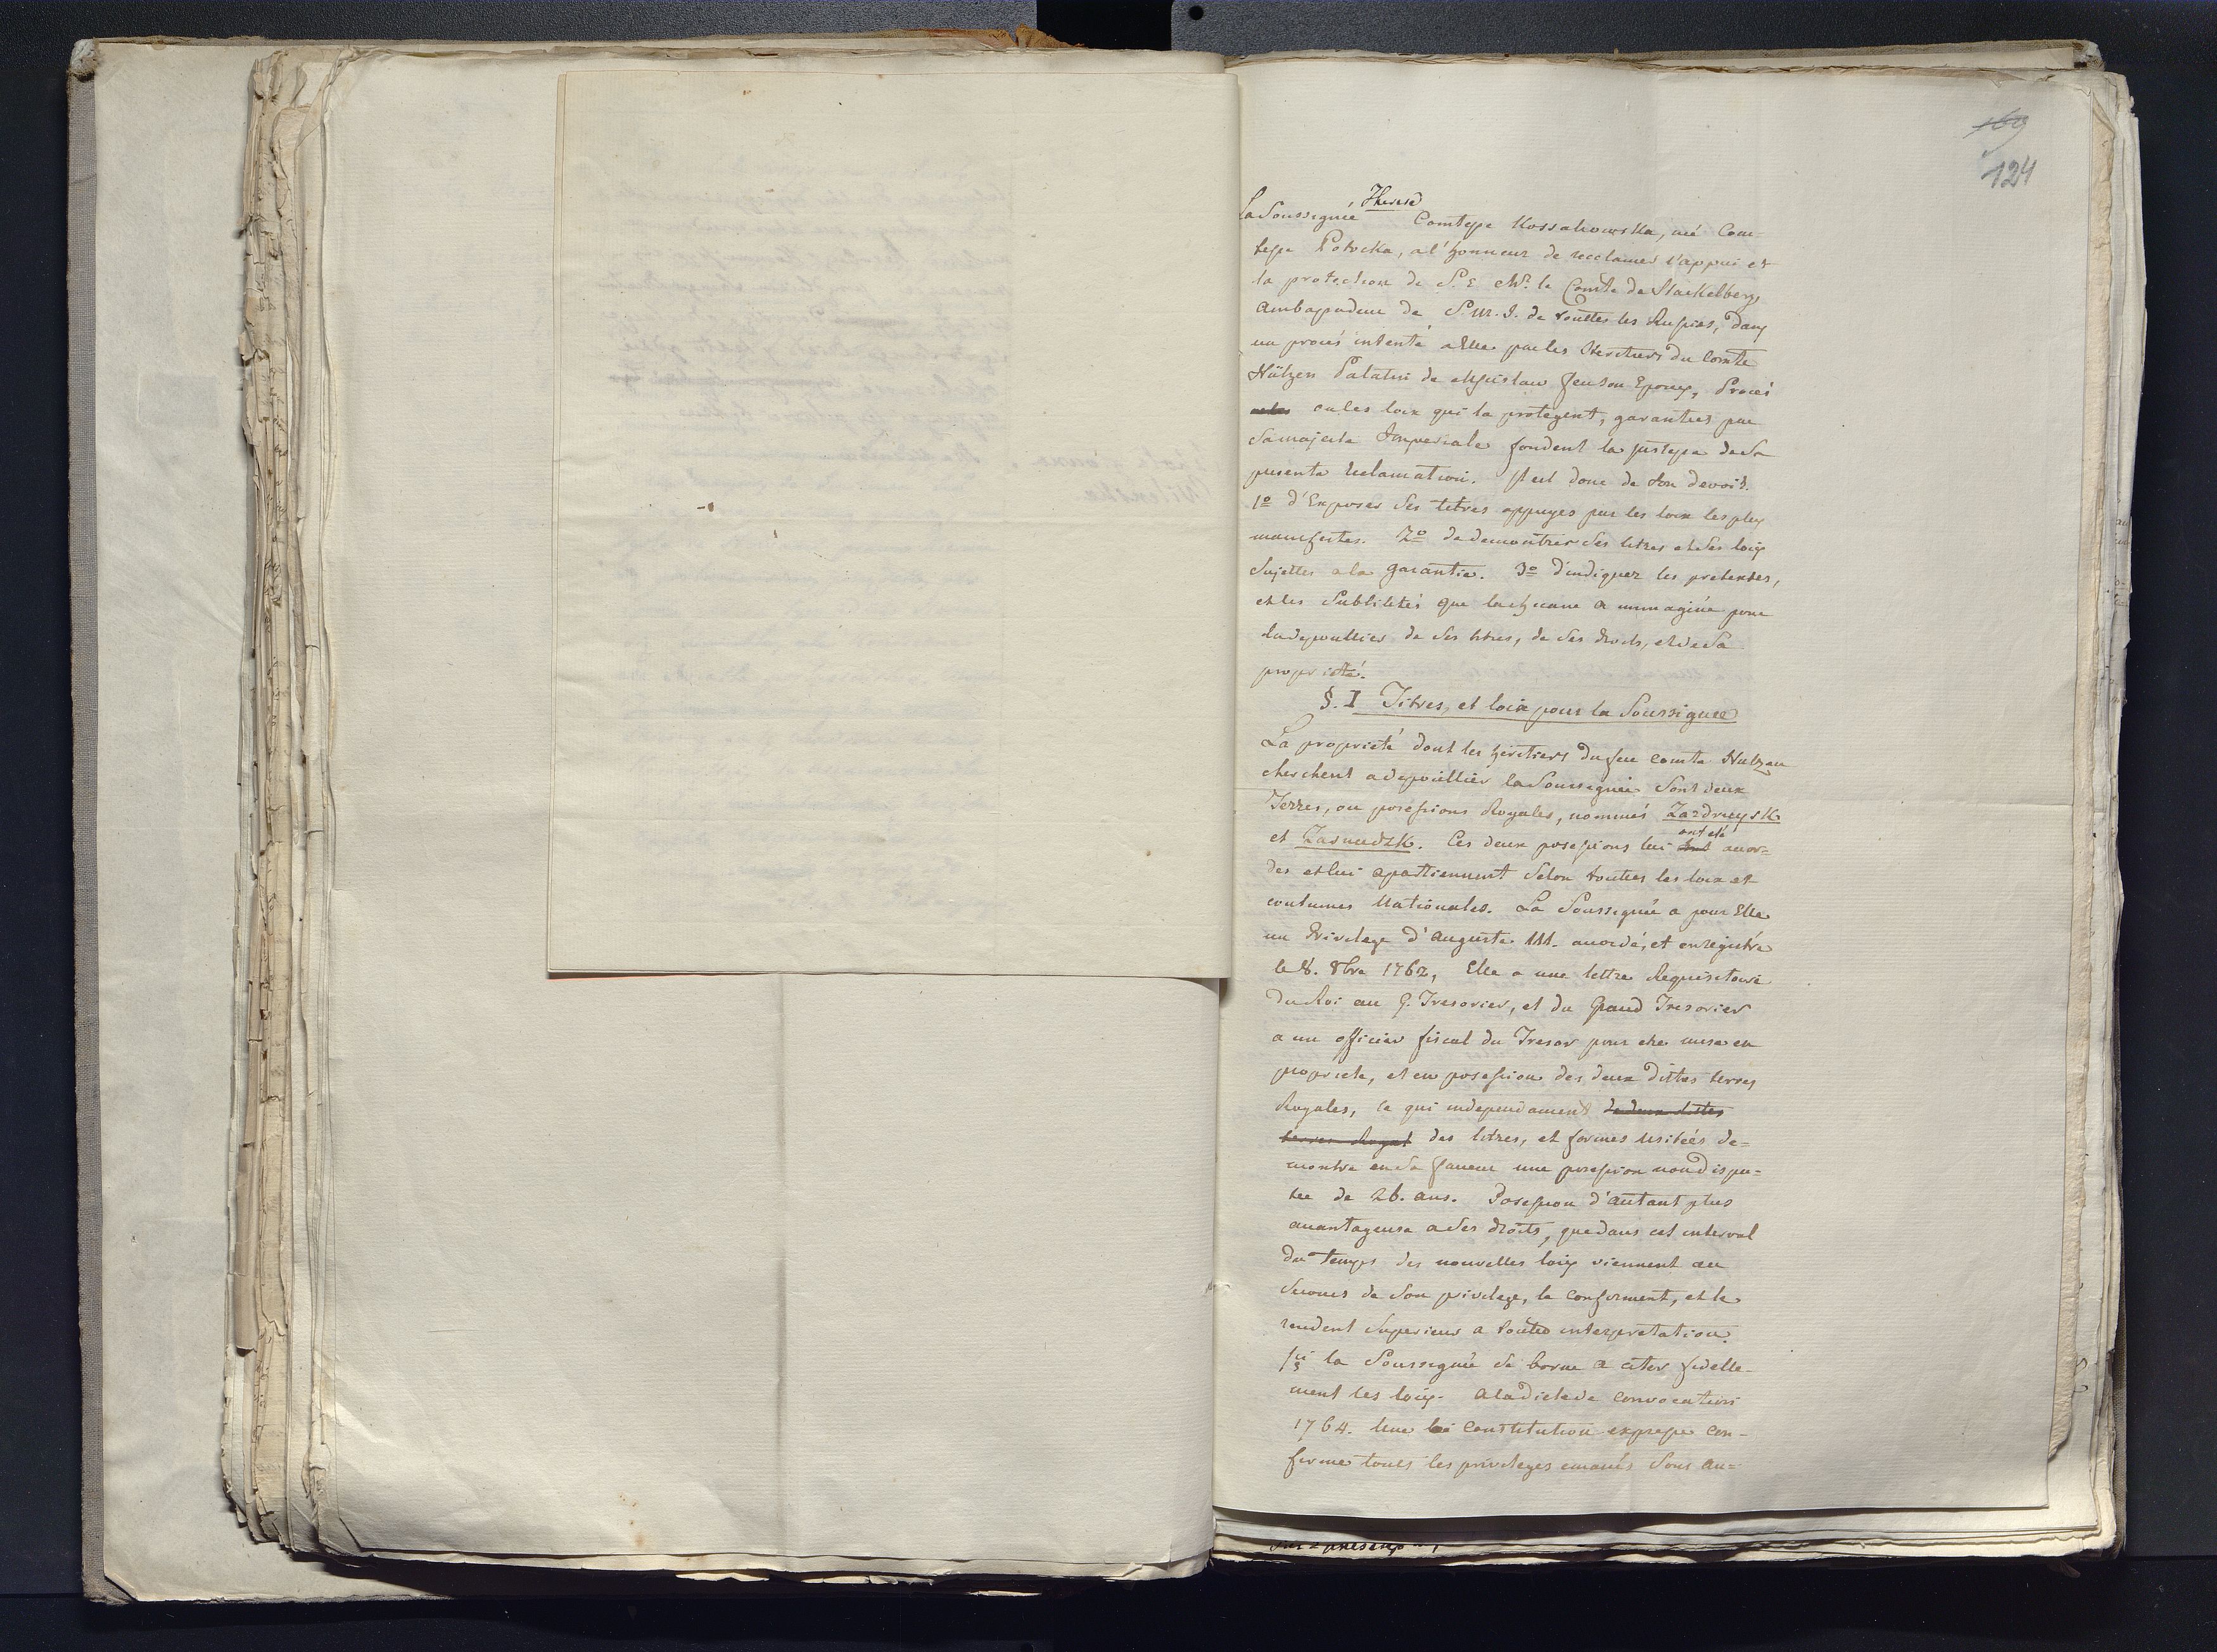 169
124
Therese
La Soussignée Comtesse Kossakowska, né Com-
tesse Potocka, a l'honneur de recclamer l'appui et
la protection de S. E. Mr. le Comte de Stackelberg
Ambassadeur de S. M. I. de touttes les Russies, dans
un procés intenté a Elle par les Heritiers du Comte
Hülzen Palatin de Mscislaw feu son Epoux, Procés
ou les loix qui la protegent, garanties par
Sa majesté Imperiale fondent la justesse de Sa
presente Reclamation. Il est donc de son devoir.
1º d'Exposer Ses titres appuyes par les loix les plus
manifestes. 2º de demontrer Ses titres et Ses loix
Sujettes a la garantie. 3º d'indiquer les pretextes,
et les Subtilités que la chicane a immaginé pour
la depouillier de Ses titres, de Ses droits, et de Sa
proprieté.
§. I Titres, et loix pour la Soussignée
La proprieté dont les heritiers du feu comte Hulzen
cherchent a depouillier la Soussignée Sont deux
Terres, ou possessions Royales, nommés Zazdruysk
ont eté
et . Ces deux possessions lui accor-
des et lui apartiennent Selon toutes les loix et
coutumes Nationales. La Soussignée a pour Elle
un Privilege d'Auguste III. accordé, et enregistré
le 8. 8bre 1762, Elle a une lettre Requisitoire
du Roi au G. Tresorier, et du Grand Tresorier
a un officier fiscal du Tresor pour etre mise en
proprieté, et en possession des deux dittes terres
Royales, ce qui independament de deux dittes
terres Royal des titres, et formes usitées de=
montre en Sa faveur une possession non dispu=
tée de 26. ans. Possession d'autant plus
avantageuse a Ses droits, que dans cet interval
du temps des nouvelles loix viennent au
Secours de Son privilege, le confirment, et le
rendent Superieur a toute interpretation.
Ici la Soussignée Se borne a citer fidelle-
ment les loix. A la Diete de Convocation
1764. Une Constitution expresse con-
firme touts les privileges emanés Sous Au=